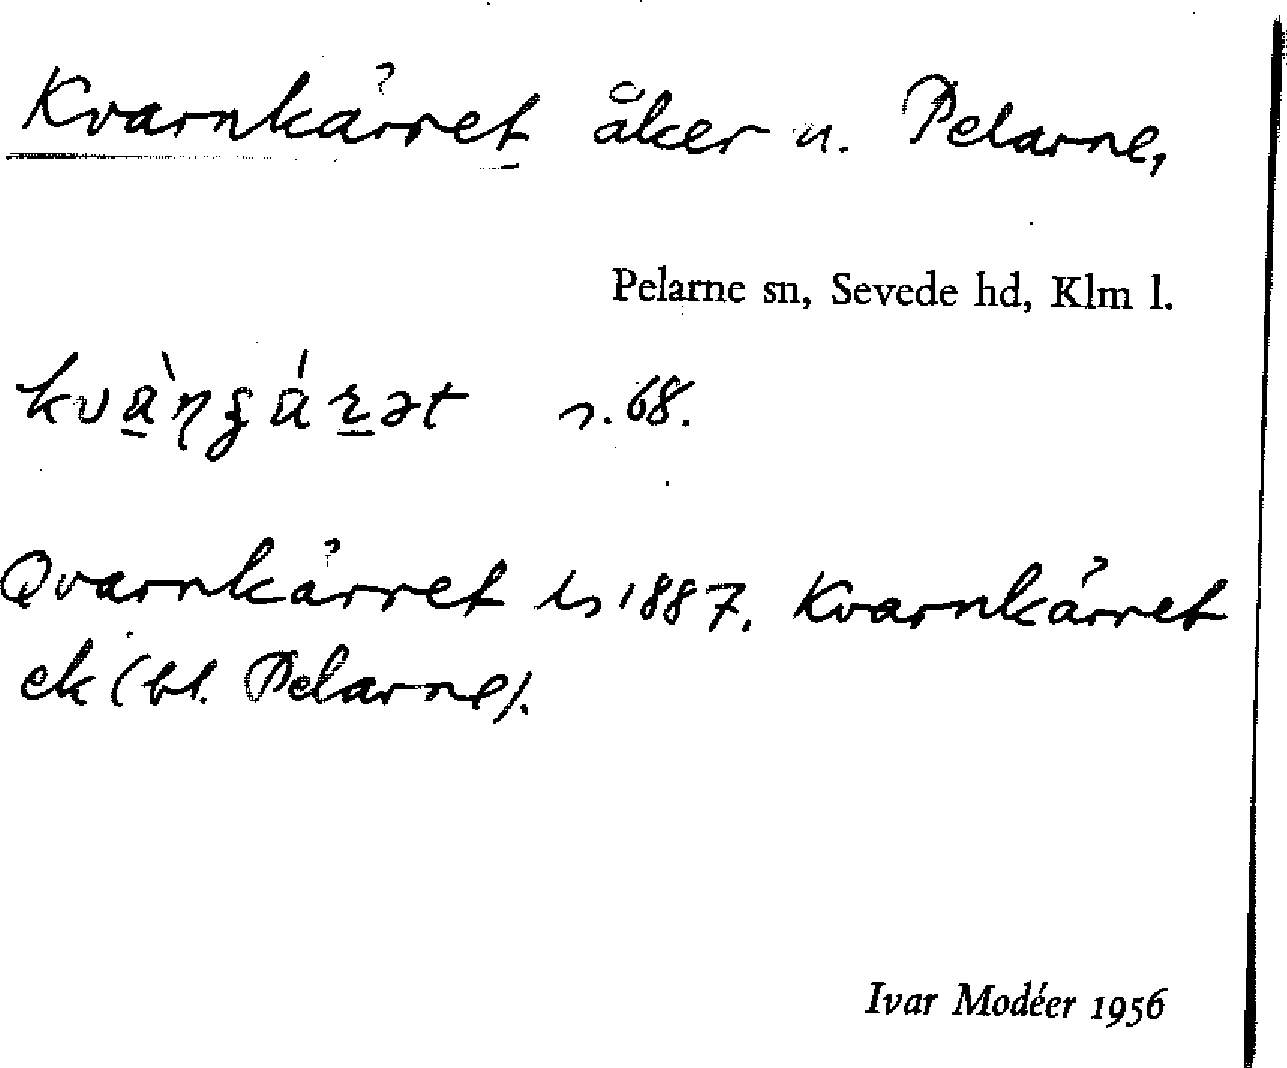 Kvarnkärret åker u. Pelarne,
Pelarne sn, Sevede hd, Klm l.
s. 68.
Qvarnkärret ls 1887. Kvarnkärret
ek (bl. Pelarne).
Ivar Modéer 1956